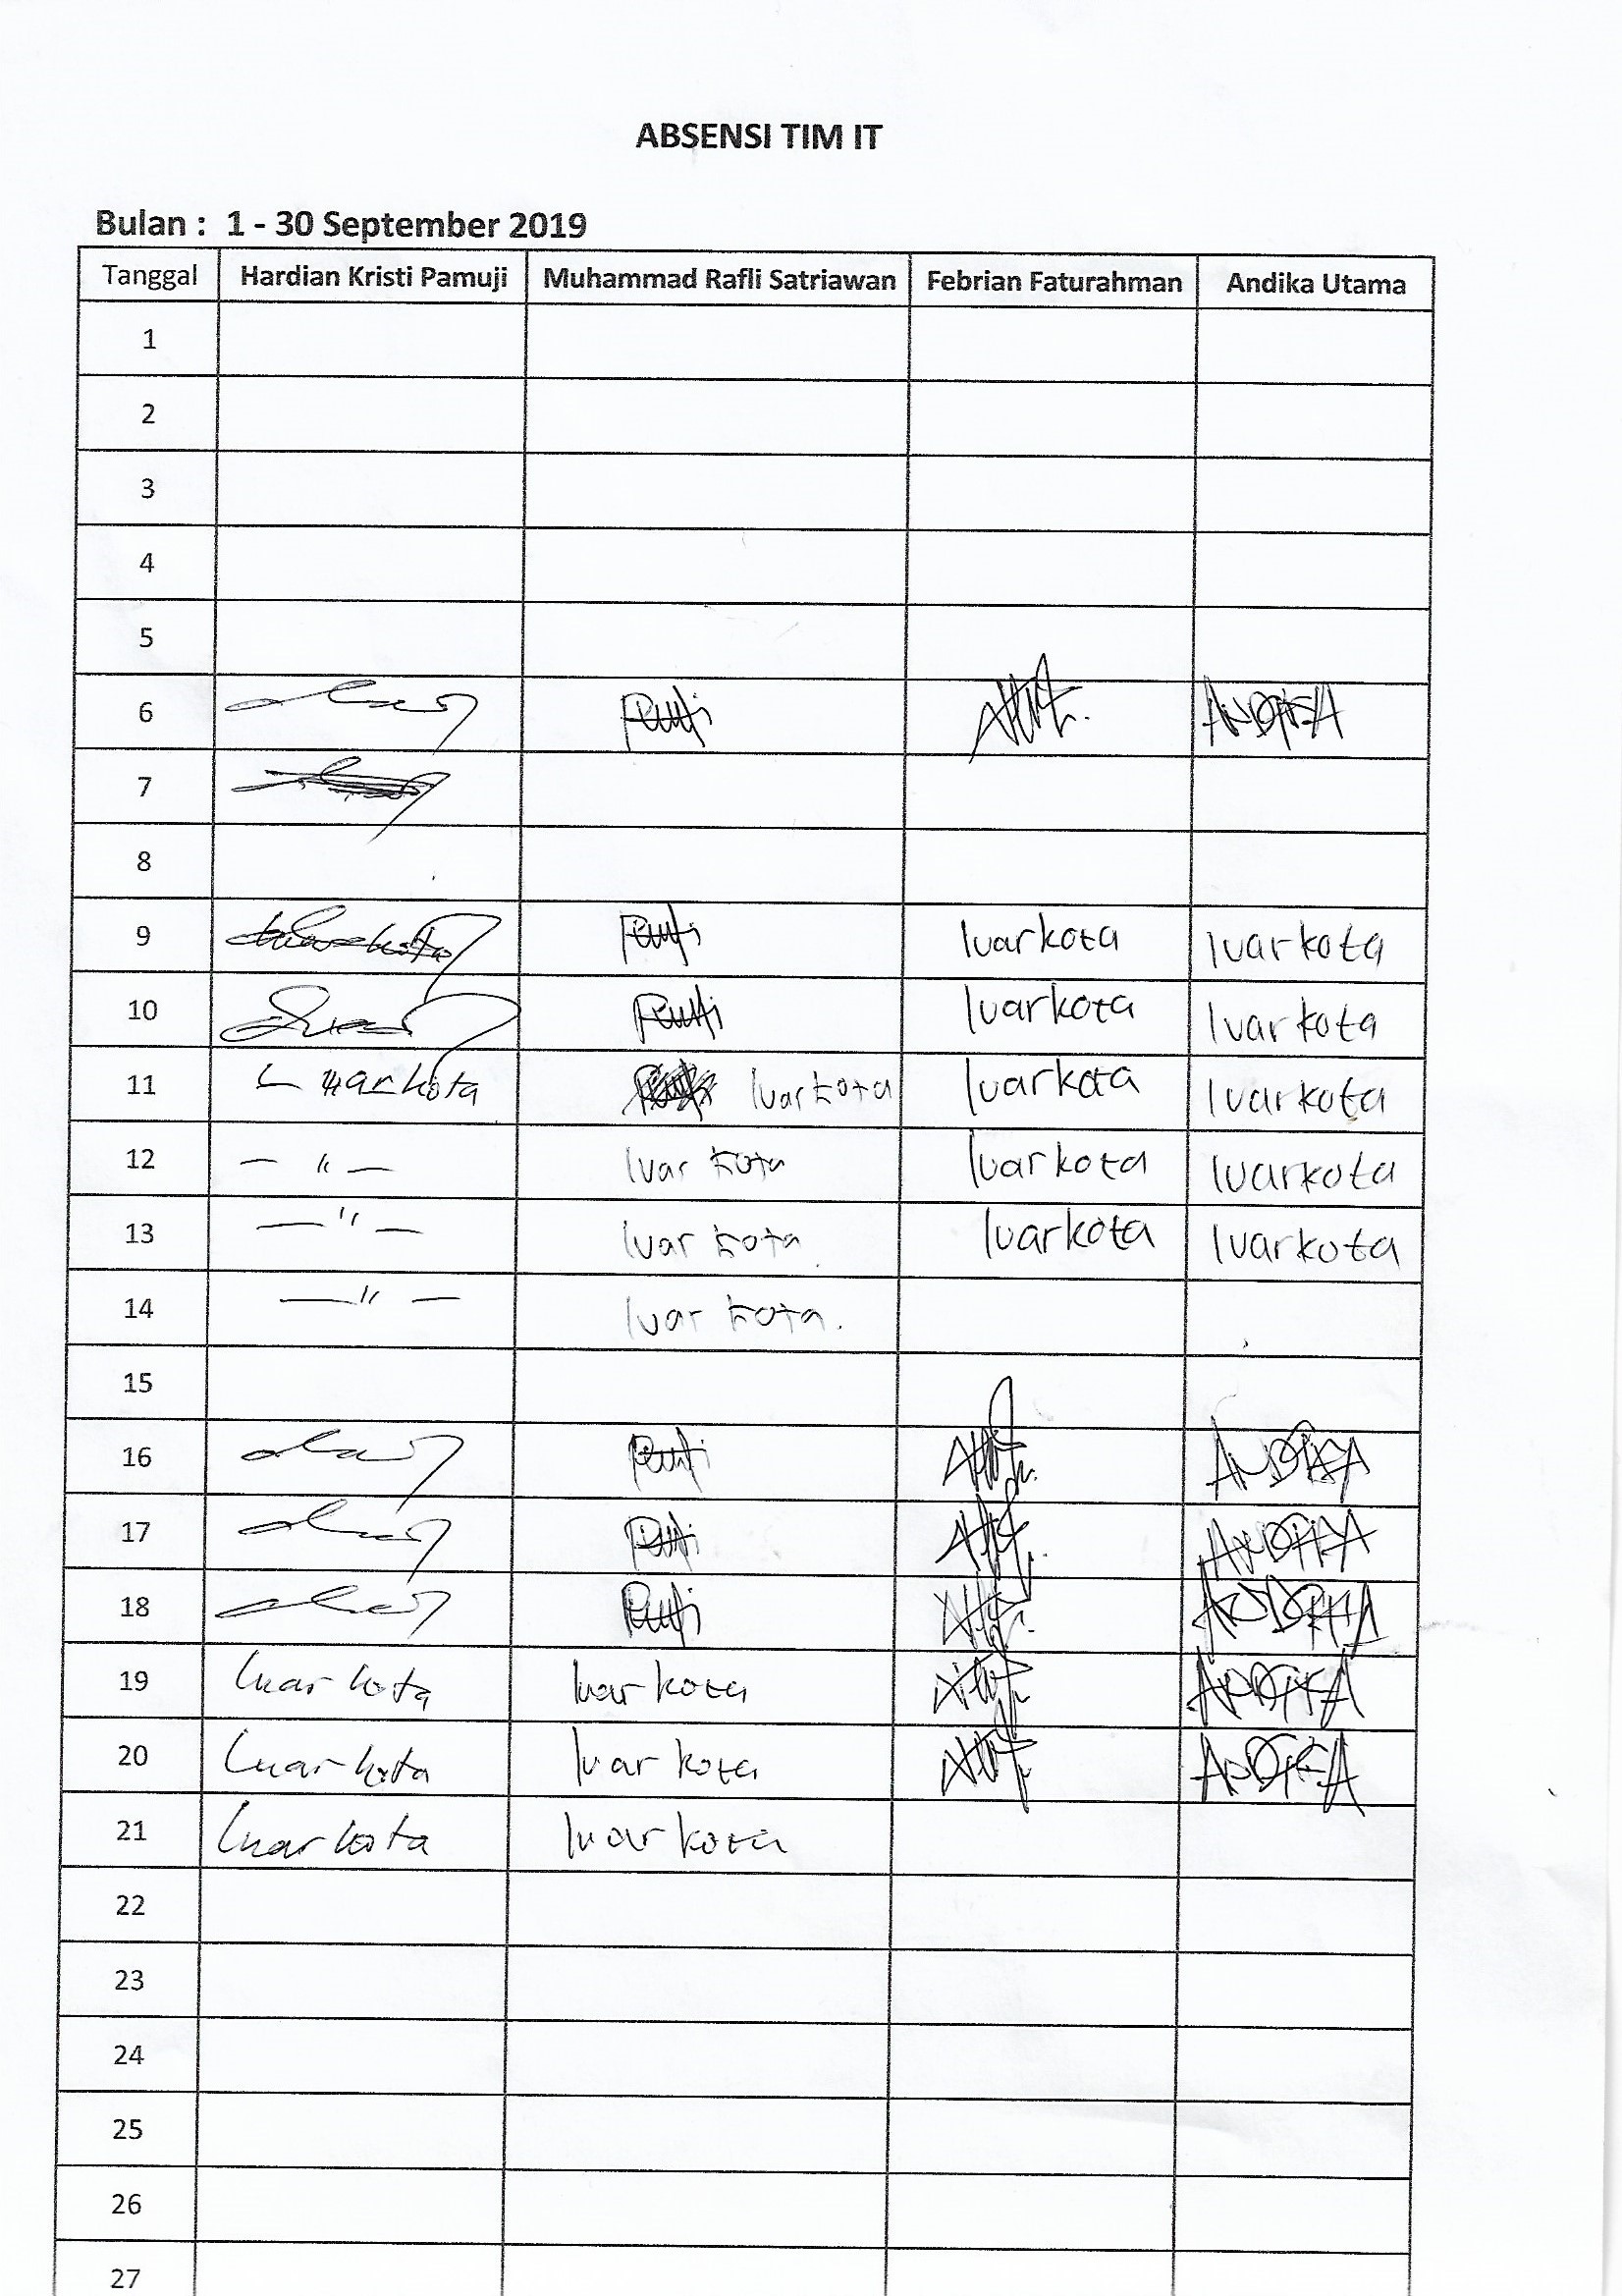 ABSENSI TIM IT
Bulan : 1 - 30 September 2019
Tanggal Hardian Kristi Pamuji Muhammad Rafli Satriawan Febrian Faturahman Andika Utama
1
2
3
4
5
6 ANDIKA
7
8
9 luar kota luar kota
10 luar kota luar kota
11 Luar kota luar kota luar kota luar kota
12 — " — luar kota luar kota luar kota
13 — " — luar kota luar kota luar kota
14 — " — luar kota.
15
16 ANDIKA
17 ANDIKA
18 ANDIKA
19 luar kota luar kota ANDIKA
20 Luar kota luar kota ANDIKA
21 Luar kota luar kota
22
23
24
25
26
27